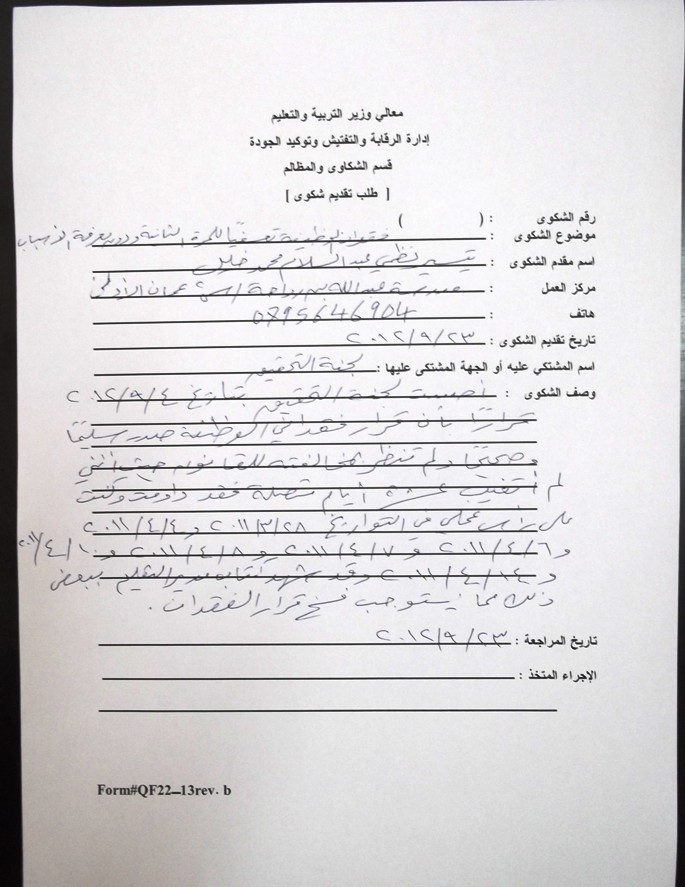 معالي وزير التربية والتعليم
إدارة الرقابة والتفتيش وتوكيد الجودة
قسم الشكاوى والمظالم
[ طلب تقديم شكوى ]
رقم الشكوى : ( )
موضوع الشكوى : فقدان الوظيفة تعسفيًا للمرة الثانية ودون معرفة الأسباب
اسم مقدم الشكوى : تيسير نظمي عبد السلام محمد خليل
مركز العمل : مدرسة عبد الله بن رواحة عمان
هاتف : 0795646904
تاريخ تقديم الشكوى : ٢٠١٢/٩/٢٣
اسم المشتكي عليه أو الجهة المشتكى عليها : لجنة التحقيق
وصف الشكوى : أصدرت لجنة التحقيق بتاريخ ٢٠١٢/٩/٤
قرارًا بأن قرار فقداني الوظيفة صدر سليمًا
وصحيحًا ولم تنظر لمخالفته للقانون حيث أنني
لم أتغيب عشرة أيام متصلة فقد داومت وكنت
على رأس عملي في التواريخ ٢٠١١/٣/٢٨ و ٢٠١١/٤/٤
و ٢٠١١/٤/٦ و ٢٠١١/٤/٧ و ٢٠١١/٤/٨ و ٢٠١١/٤/١٠
و ٢٠١١/٤/١٤ وقد شهد مدير التعليم ببعض
ذلك مما يستوجب فسخ قرار الفقدان .
تاريخ المراجعة : ٢٠١٢/٩/٢٣
الإجراء المتخذ :
Form#QF22–13rev. b